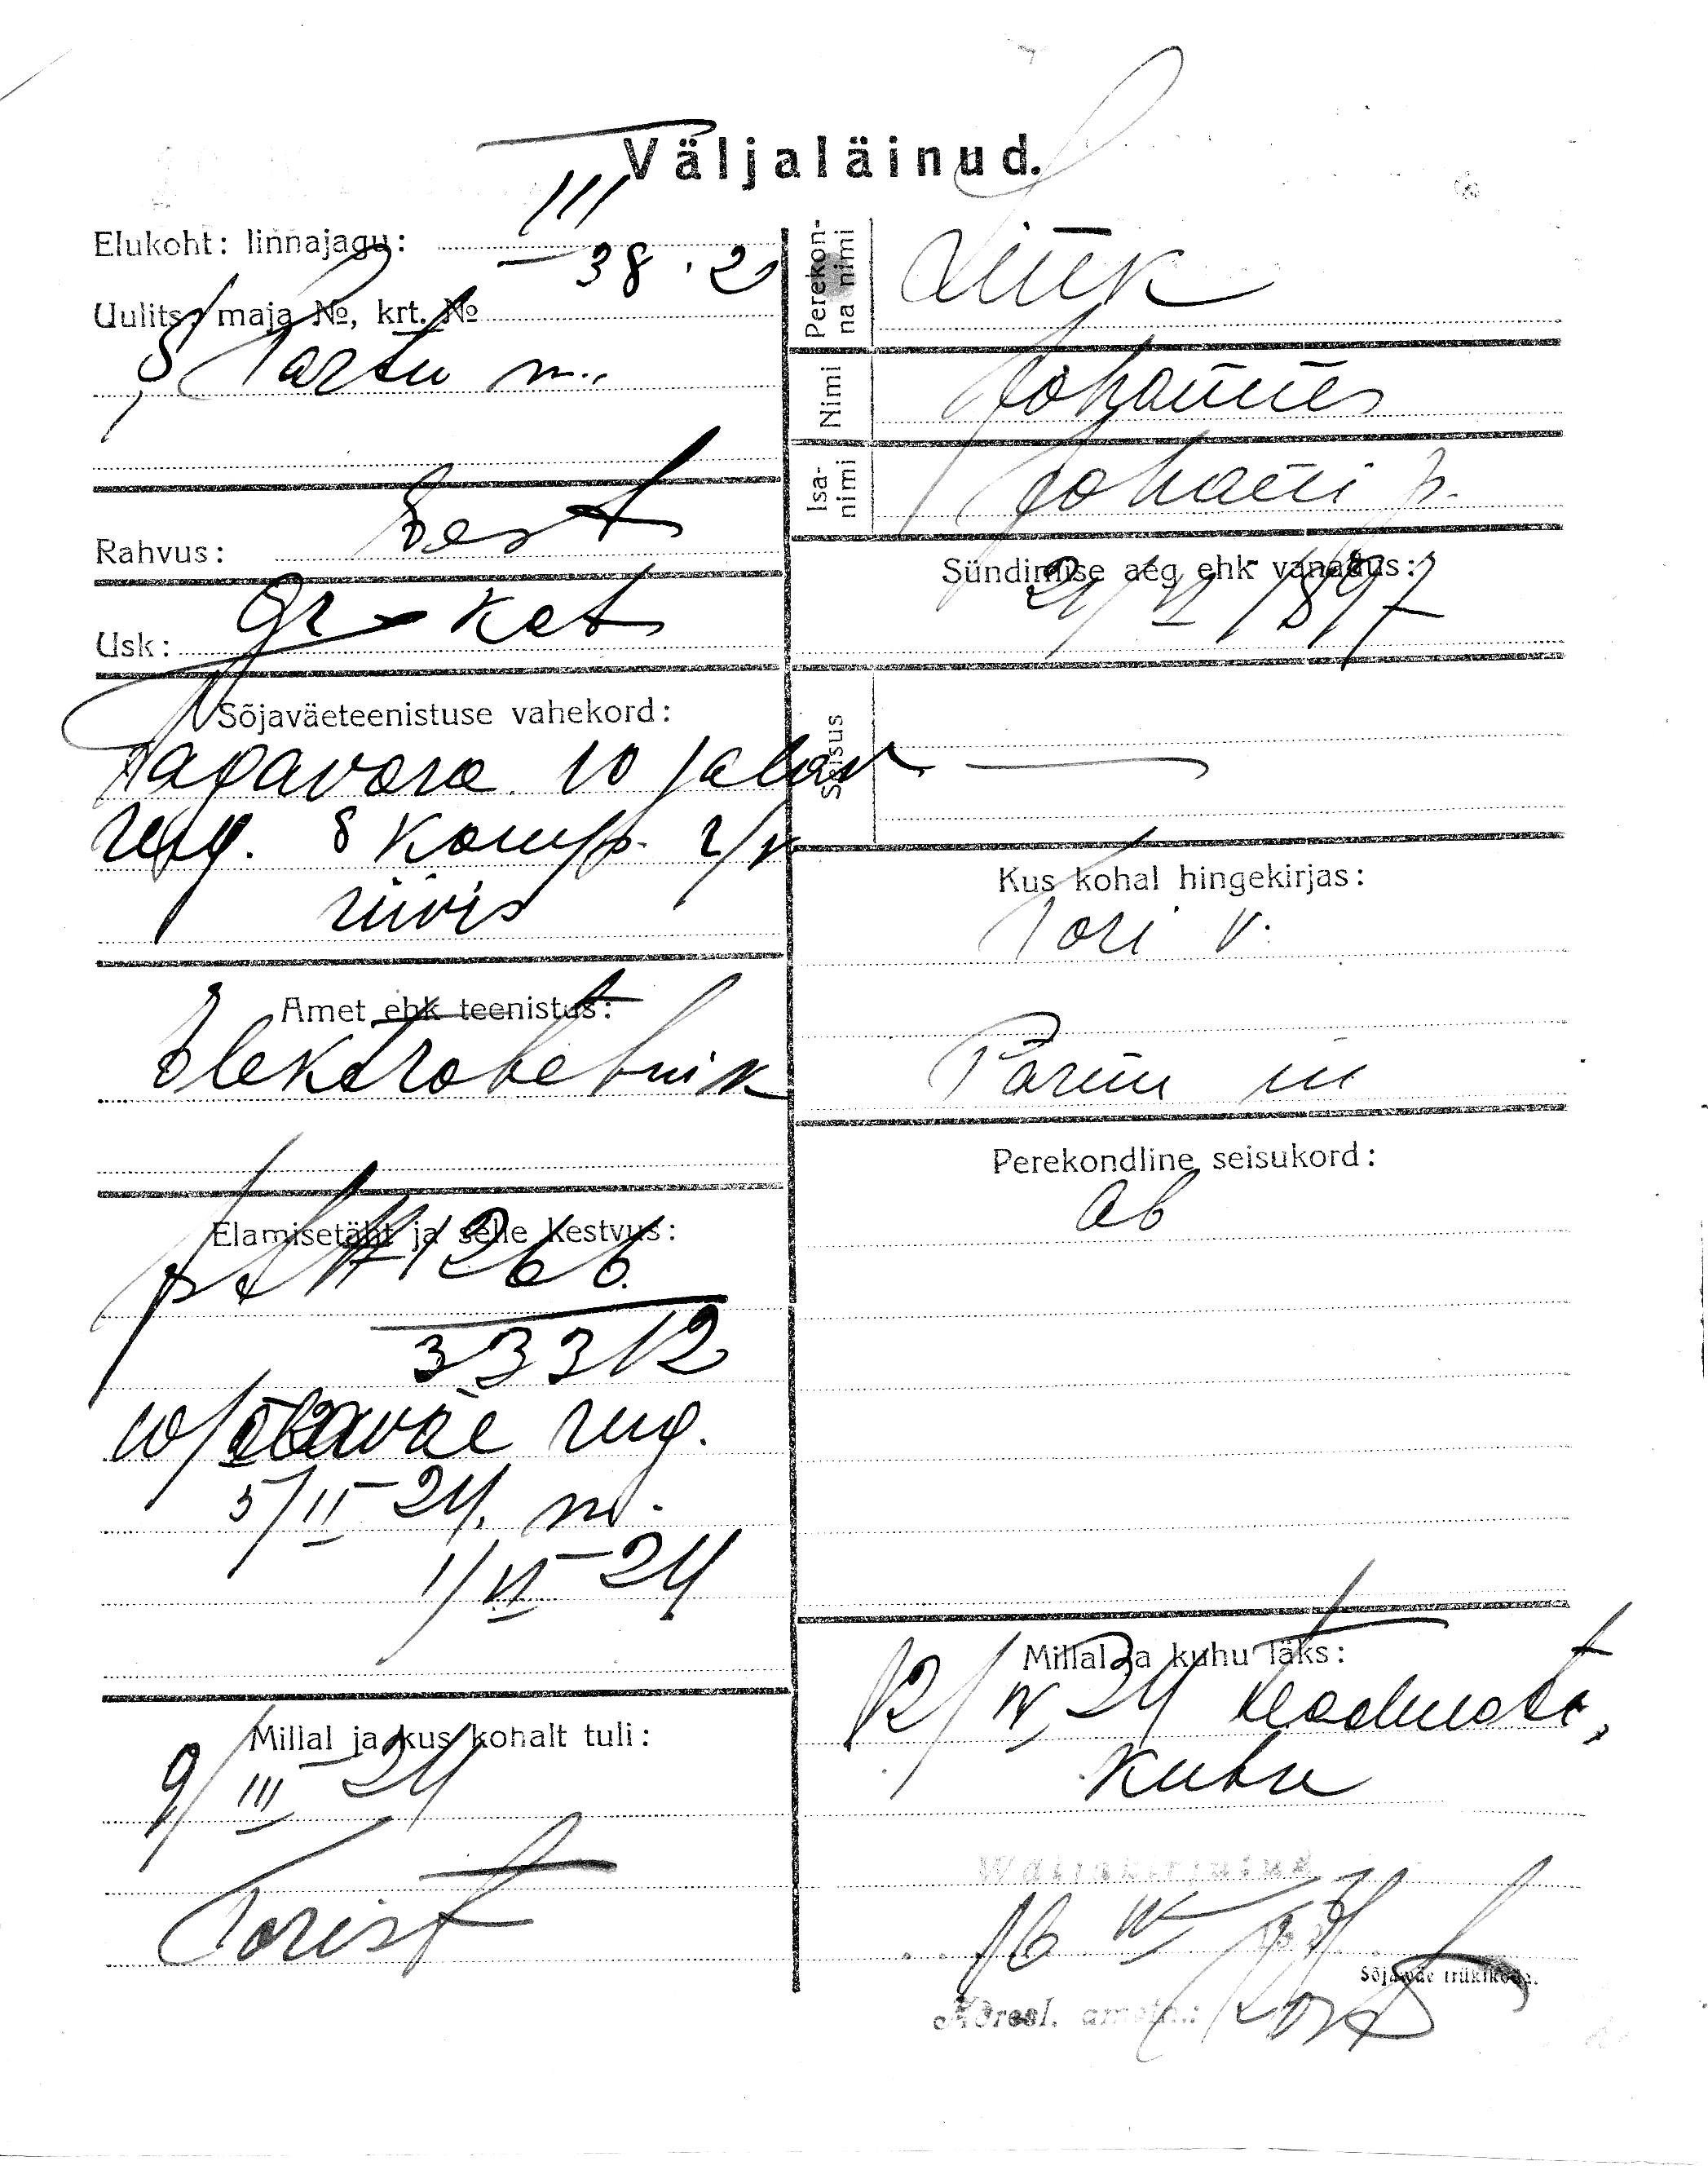 Väljaläinud.
Elukoht: linnajagu: III
Uulits, maja №, krt. № 38 . 2
S. Tartu m.
Rahvus: Eest
Usk: gr-kat
Sõjaväeteenistuse vahekord:
Tagavara 10 jalav
reg. 8 komp. r/v
riivis
Amet ehk teenistus:
Elektrotehnik
Elamisetäht ja selle kestvus:
№ 1266
33312
10 jalaväe reg.
5/II 24. m.
1/VI-24
Millal ja kus kohalt tuli:
9/III-24
Torist
Perekonna nimi Liik
Nimi Johannes
Isanimi Johani p.
Sündimise aeg ehk vanadus:
21/VI 1897
Seisus —
Kus kohal hingekirjas:
Tori v.
Pärnu m
Perekondline seisukord:
ab
Millal ja kuhu läks:
12/IV 24 teadmata,
kuhu
Wäljakirjutud
16 IV 1924
Sõjaväe trükikoda.
Adresl. ametn.: